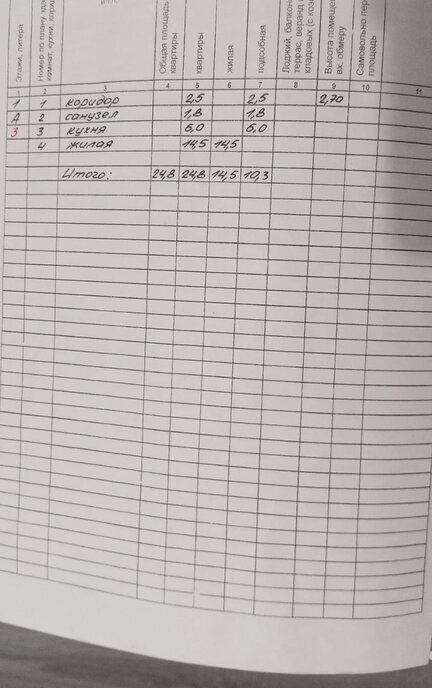 Этажи, литера
Номер по плану
комнат, кухни,
Общая площадь
квартиры
квартиры
жилая
подсобная
Лоджий,
террас, веранд
кладовых (с
Высота
вх. обмеру
Самовольно
площадь
1 2 3 4 5 6 7 8 9 10 11
1 1 коридор 2,5 2,5 2,70
А 2 санузел 1,8 1,8
3 3 кухня 6,0 6,0
4 жилая 14,5 14,5
Итого: 24,8 24,8 14,5 10,3